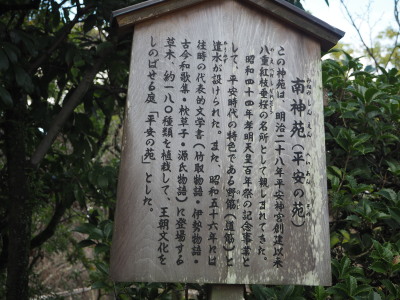 南神苑(平安の苑)
この神苑は、明治二十八年平安神宮創建以来
八重紅枝垂桜の名所として親しまれてきた。
昭和四十四年孝明天皇百年祭の記念事業と
して、平安時代の特色である野筋(道筋)と
遣水が設けられた。また、昭和五十六年には
往時の代表的文学書(竹取物語・伊勢物語・
古今和歌集・枕草子・源氏物語)に登場する
草木、約一八〇種類を植栽して、王朝文化を
しのばせる庭「平安の苑」とした。